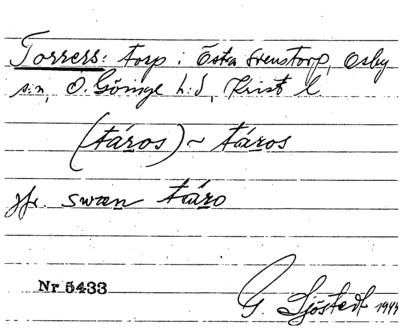 Torrers: torp i Östra Svenstorp, Osby
s:n, Ö. Göinge h:d, Krist l.
(táros) ~ táros
jfr. swæn táro
Nr 5433
G. Sjöstedt 1944